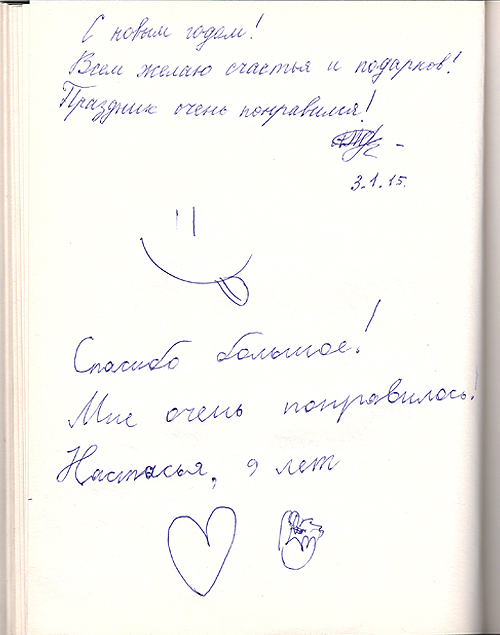 С новым годом!
Всем желаю счастья и подарков!
Праздник очень понравился!
3.1.15.
Спасибо большое!
Мне очень понравилось!
Настасья, 9 лет